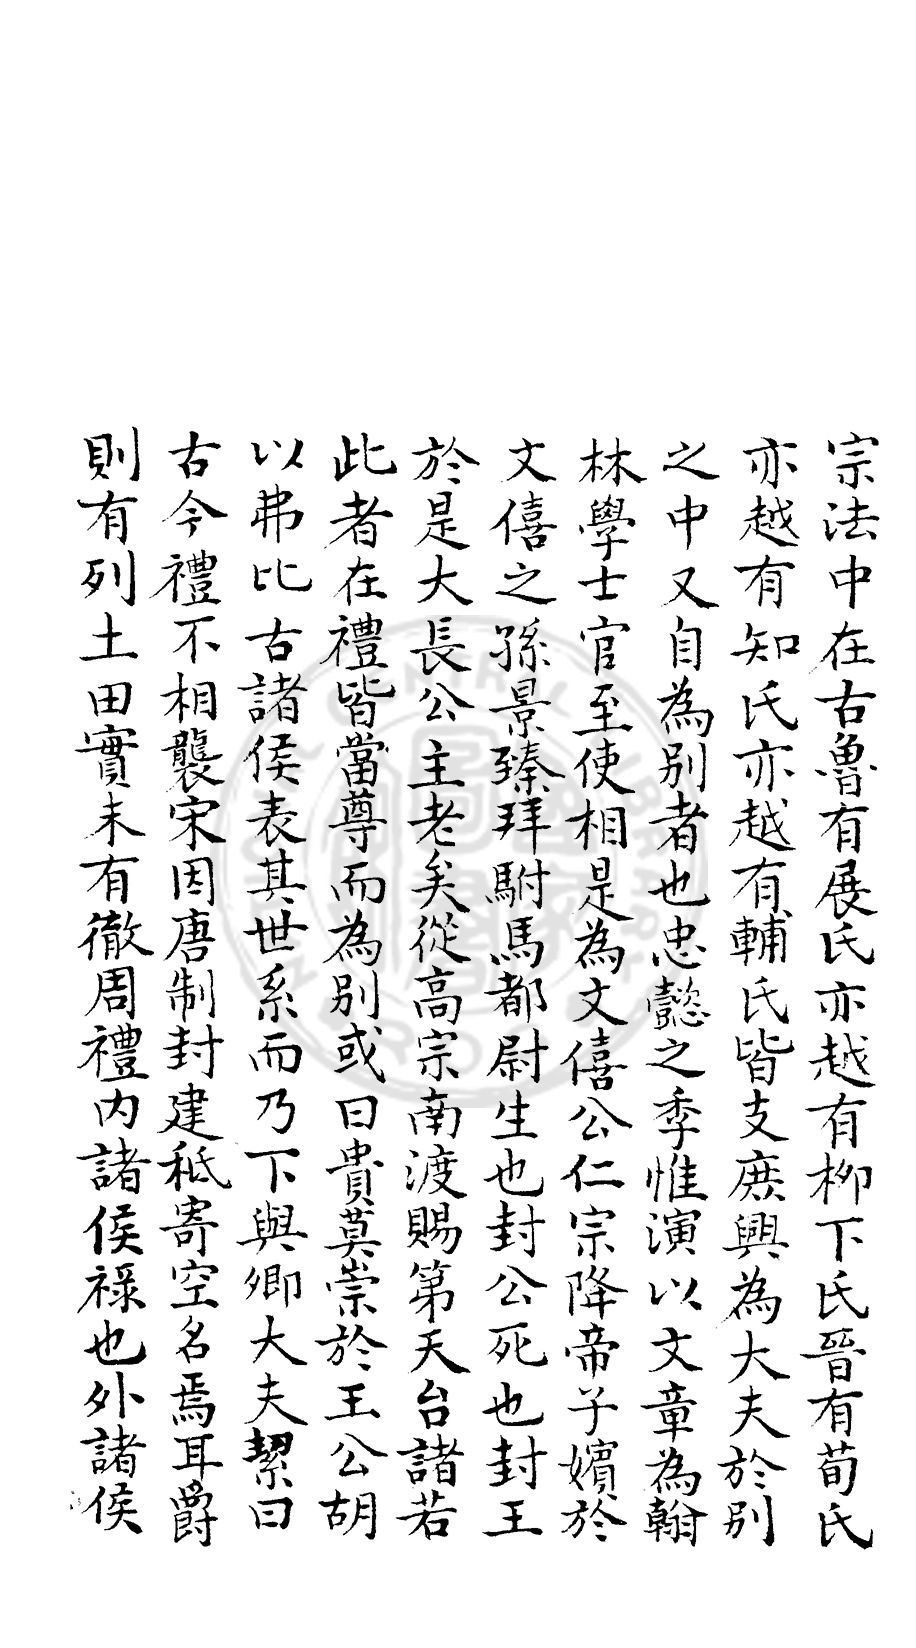 宗法中在古魯有展氏亦越有柳下氏晉有荀氏
亦越有知氏亦越有輔氏皆支庶興為大夫於別
之中又自為別者也忠懿之季惟演以文章為翰
林學士官至使相是為文僖公仁宗降帝子嬪於
文僖之孫景臻拜駙馬都尉生也封公死也封王
於是大長公主老矣從高宗南渡賜第天台諸若
此者在禮皆當尊而為別或曰貴莫崇於王公胡
以弗比古諸侯表其世系而乃下與卿大夫絜曰
古今禮不相襲宋因唐制封建秪寄空名焉耳爵
則有列土田實未有徹周禮內諸侯祿也外諸侯